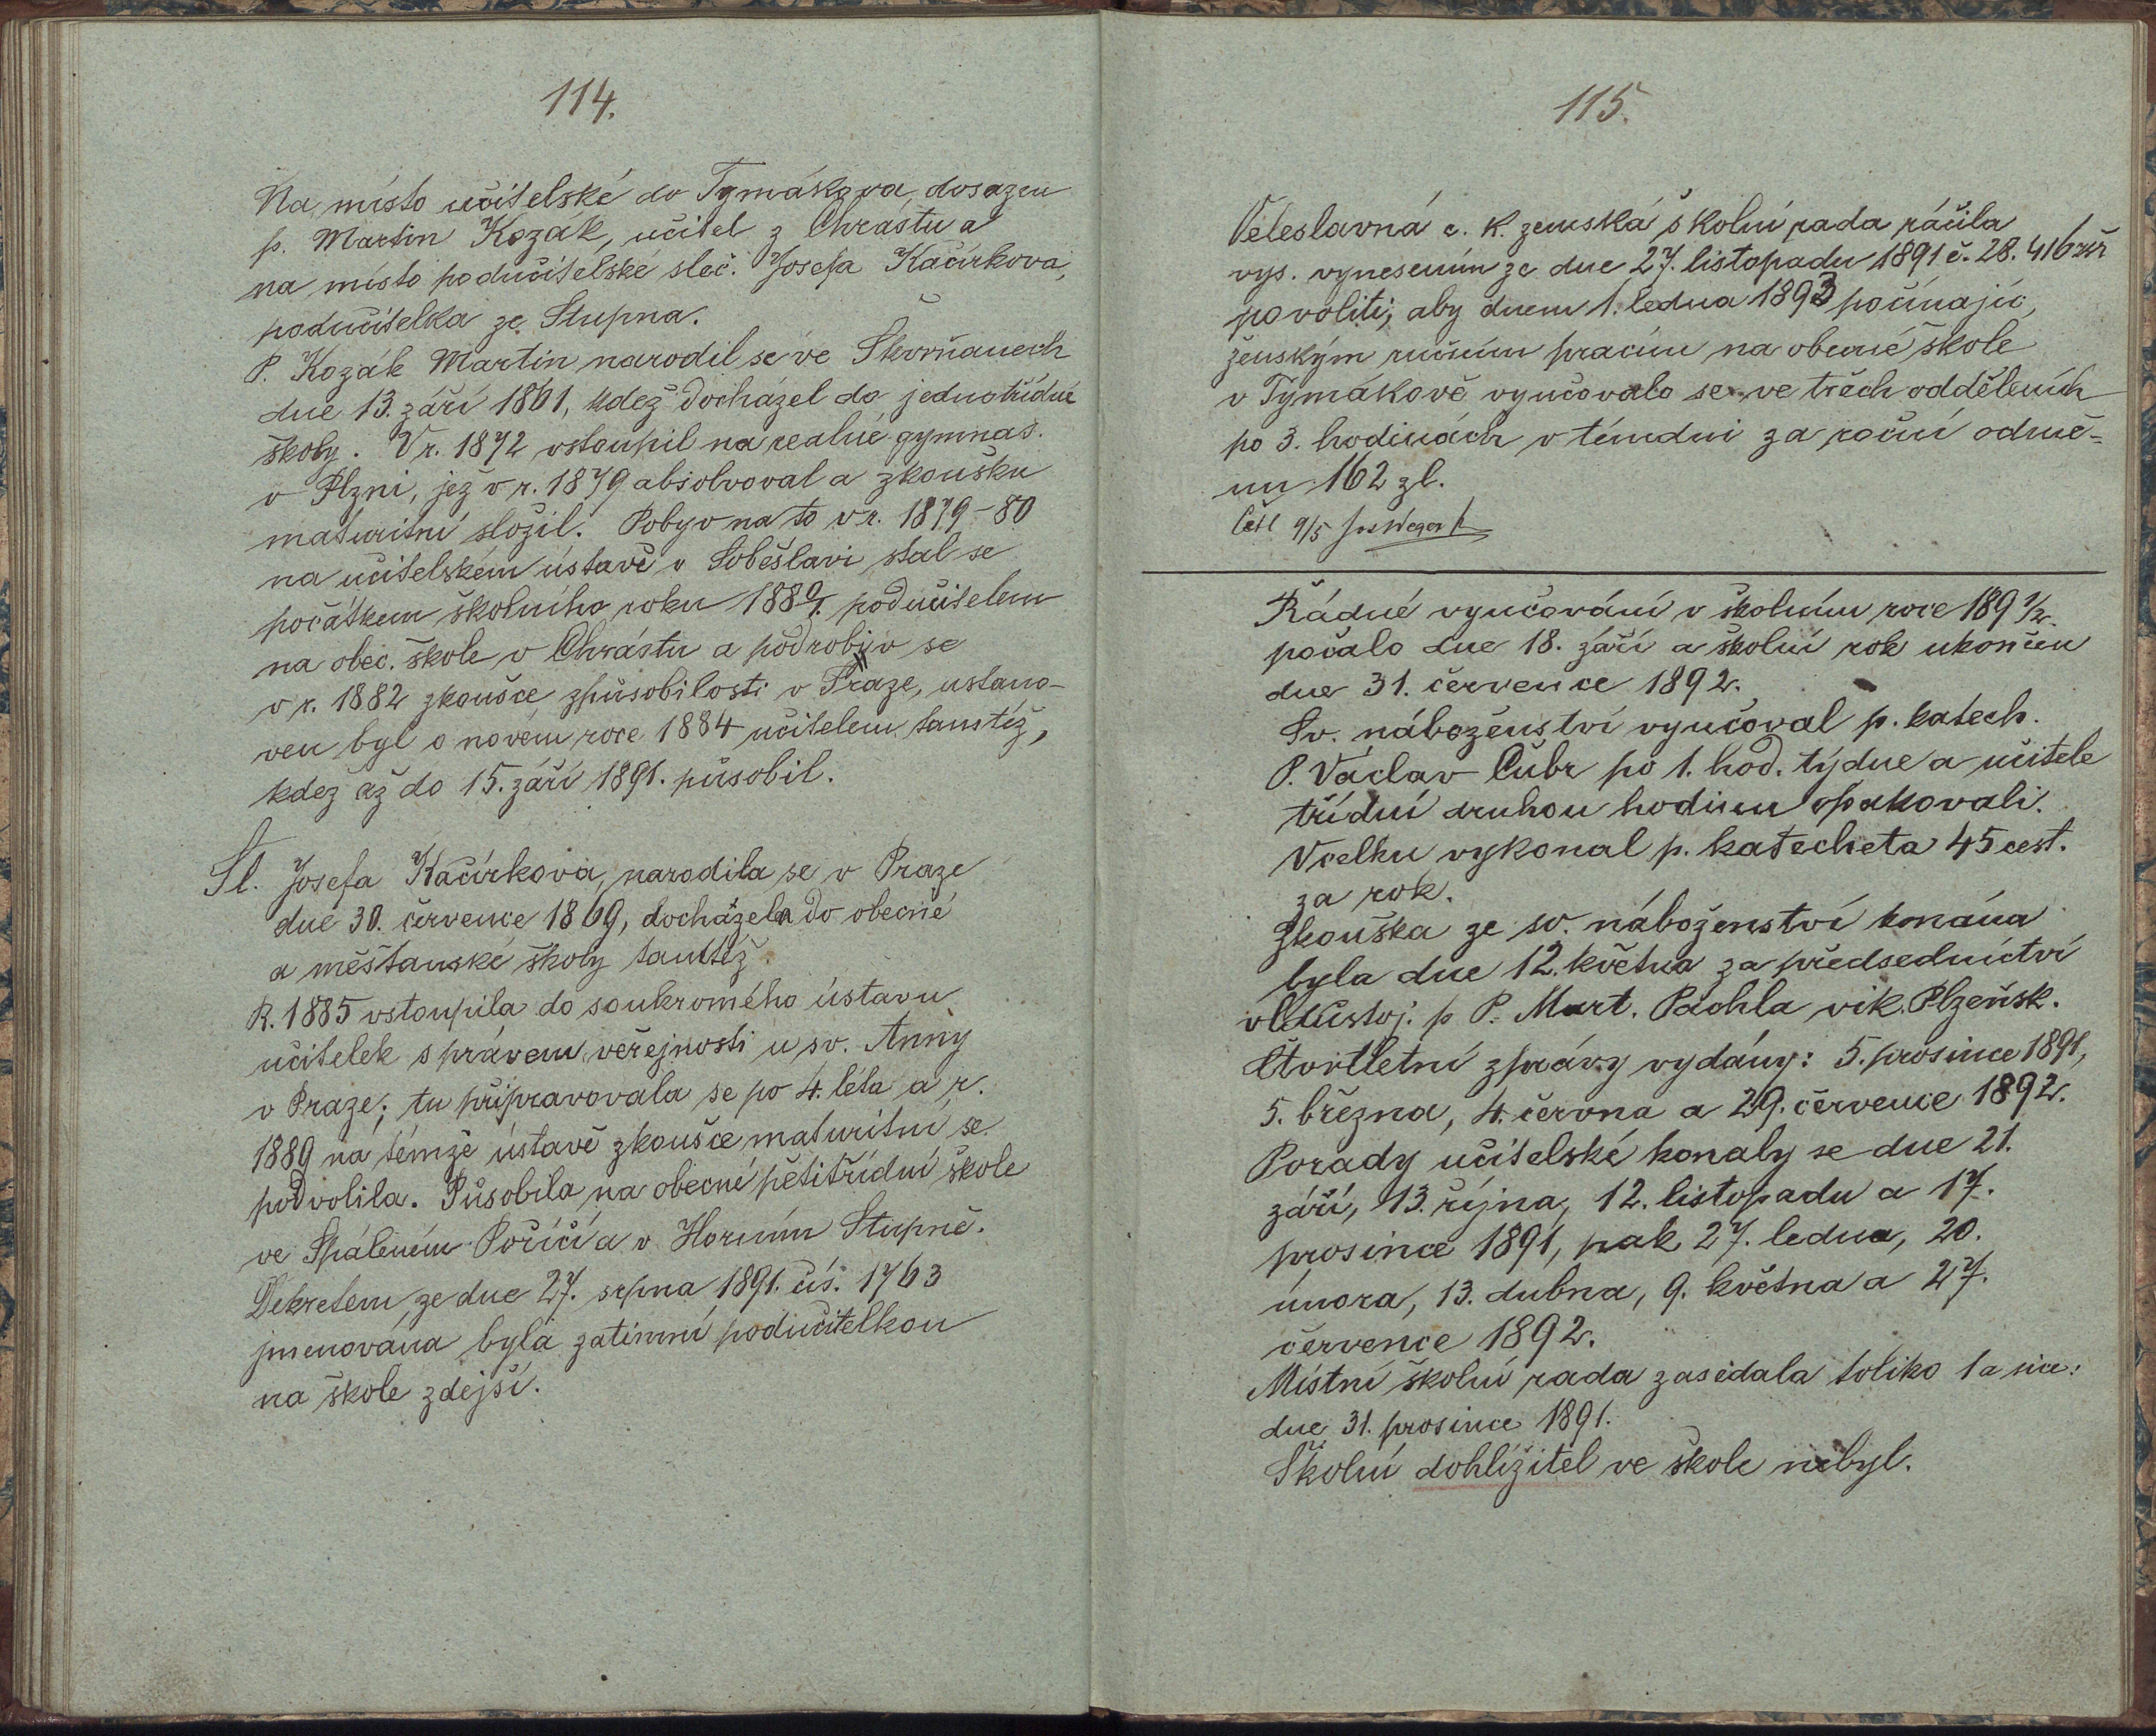 114.
Na místo učitelské do Tymákova dosazen
p. Martin Kozák, učitel z Chrástu a
na místo podučitelské sleč. Josefa Kačírkova,
podučitelka ze Stupna.
P. Kozák Martin narodil se ve Skvrňanech
dne 13. září 1861, kdež docházel do jednotřídné
školy. V r. 1872 vstoupil na realné gymnas.
v Plzni, jež v r. 1879 absolvoval a zkoušku
maturitní složil. Pobyv na to v r. 1879-80
na učitelském ústavě v Soběslavi stal se
počátkem školního roku 188 0/1. podučitelem
na obec. škole v Chrástu a podrobiv se
v r. 1882 zkoušce způsobilosti v Praze, ustano-
ven byl o novém roce 1884 učitelem tamtéž,
kdež až do 15. září 1891. působil.
Sl. Josefa Kačírkova, narodila se v Praze
dne 30. července 1869, docházela do obecné
a měšťanské školy tamtéž.
R. 1885 vstoupila do soukromého ústavu
učitelek s právem veřejnosti u sv. Anny
v Praze; tu připravovala se po 4. léta a r.
1889 na témže ústavě zkoušce maturitní se
podvolila. Působila na obecné pětitřídní škole
ve Spáleném Poříčí a v Horním Stupně.
Dekretem ze dne 27. srpna 1891. čís. 1763
jmenována byla zatímní podučitelkou
na škole zdejší.
115.
Veleslavná c. k. zemská školní rada ráčila
vys. vynesením ze dne 27. listopadu 1891 č. 28.416 zšr
povoliti, aby dnem 1. ledna 1893 počínajíc,
ženským ručním pracím na obecné škole
v Tymákově vyučovalo se ve třech odděleních
po 3. hodinách v témdni za roční odmě=
nu 162 zl.
četl 9/5
Řádné vyučování v školním roce 189 1/2.
počalo dne 18. září a školní rok ukončen
dne 31. července 1892.
Sv. náboženství vyučoval p. katech.
P. Václav Čubr po 1. hod. týdne a učitele
třídní druhou hodinu opakovali.
Vcelku vykonal p. katecheta 45 cest.
za rok.
Zkouška ze sv. náboženství konána
byla dne 12. května za předsednictví
vldůstoj. p P. Mart. Pachla vik. Plzeňsk.
Čtvrtletní zprávy vydány: 5. prosince 1891,
5. března, 4. června a 29. července 1892.
Porady učitelské konaly se dne 21.
září, 13. října, 12. listopadu a 17.
prosince 1891, pak 27. ledna, 20.
února, 13. dubna, 9. května a 27.
července 1892.
Místní školní rada zasedala toliko 1 a sice:
dne 31. prosince 1891.
Školní dohlížitel ve škole nebyl.